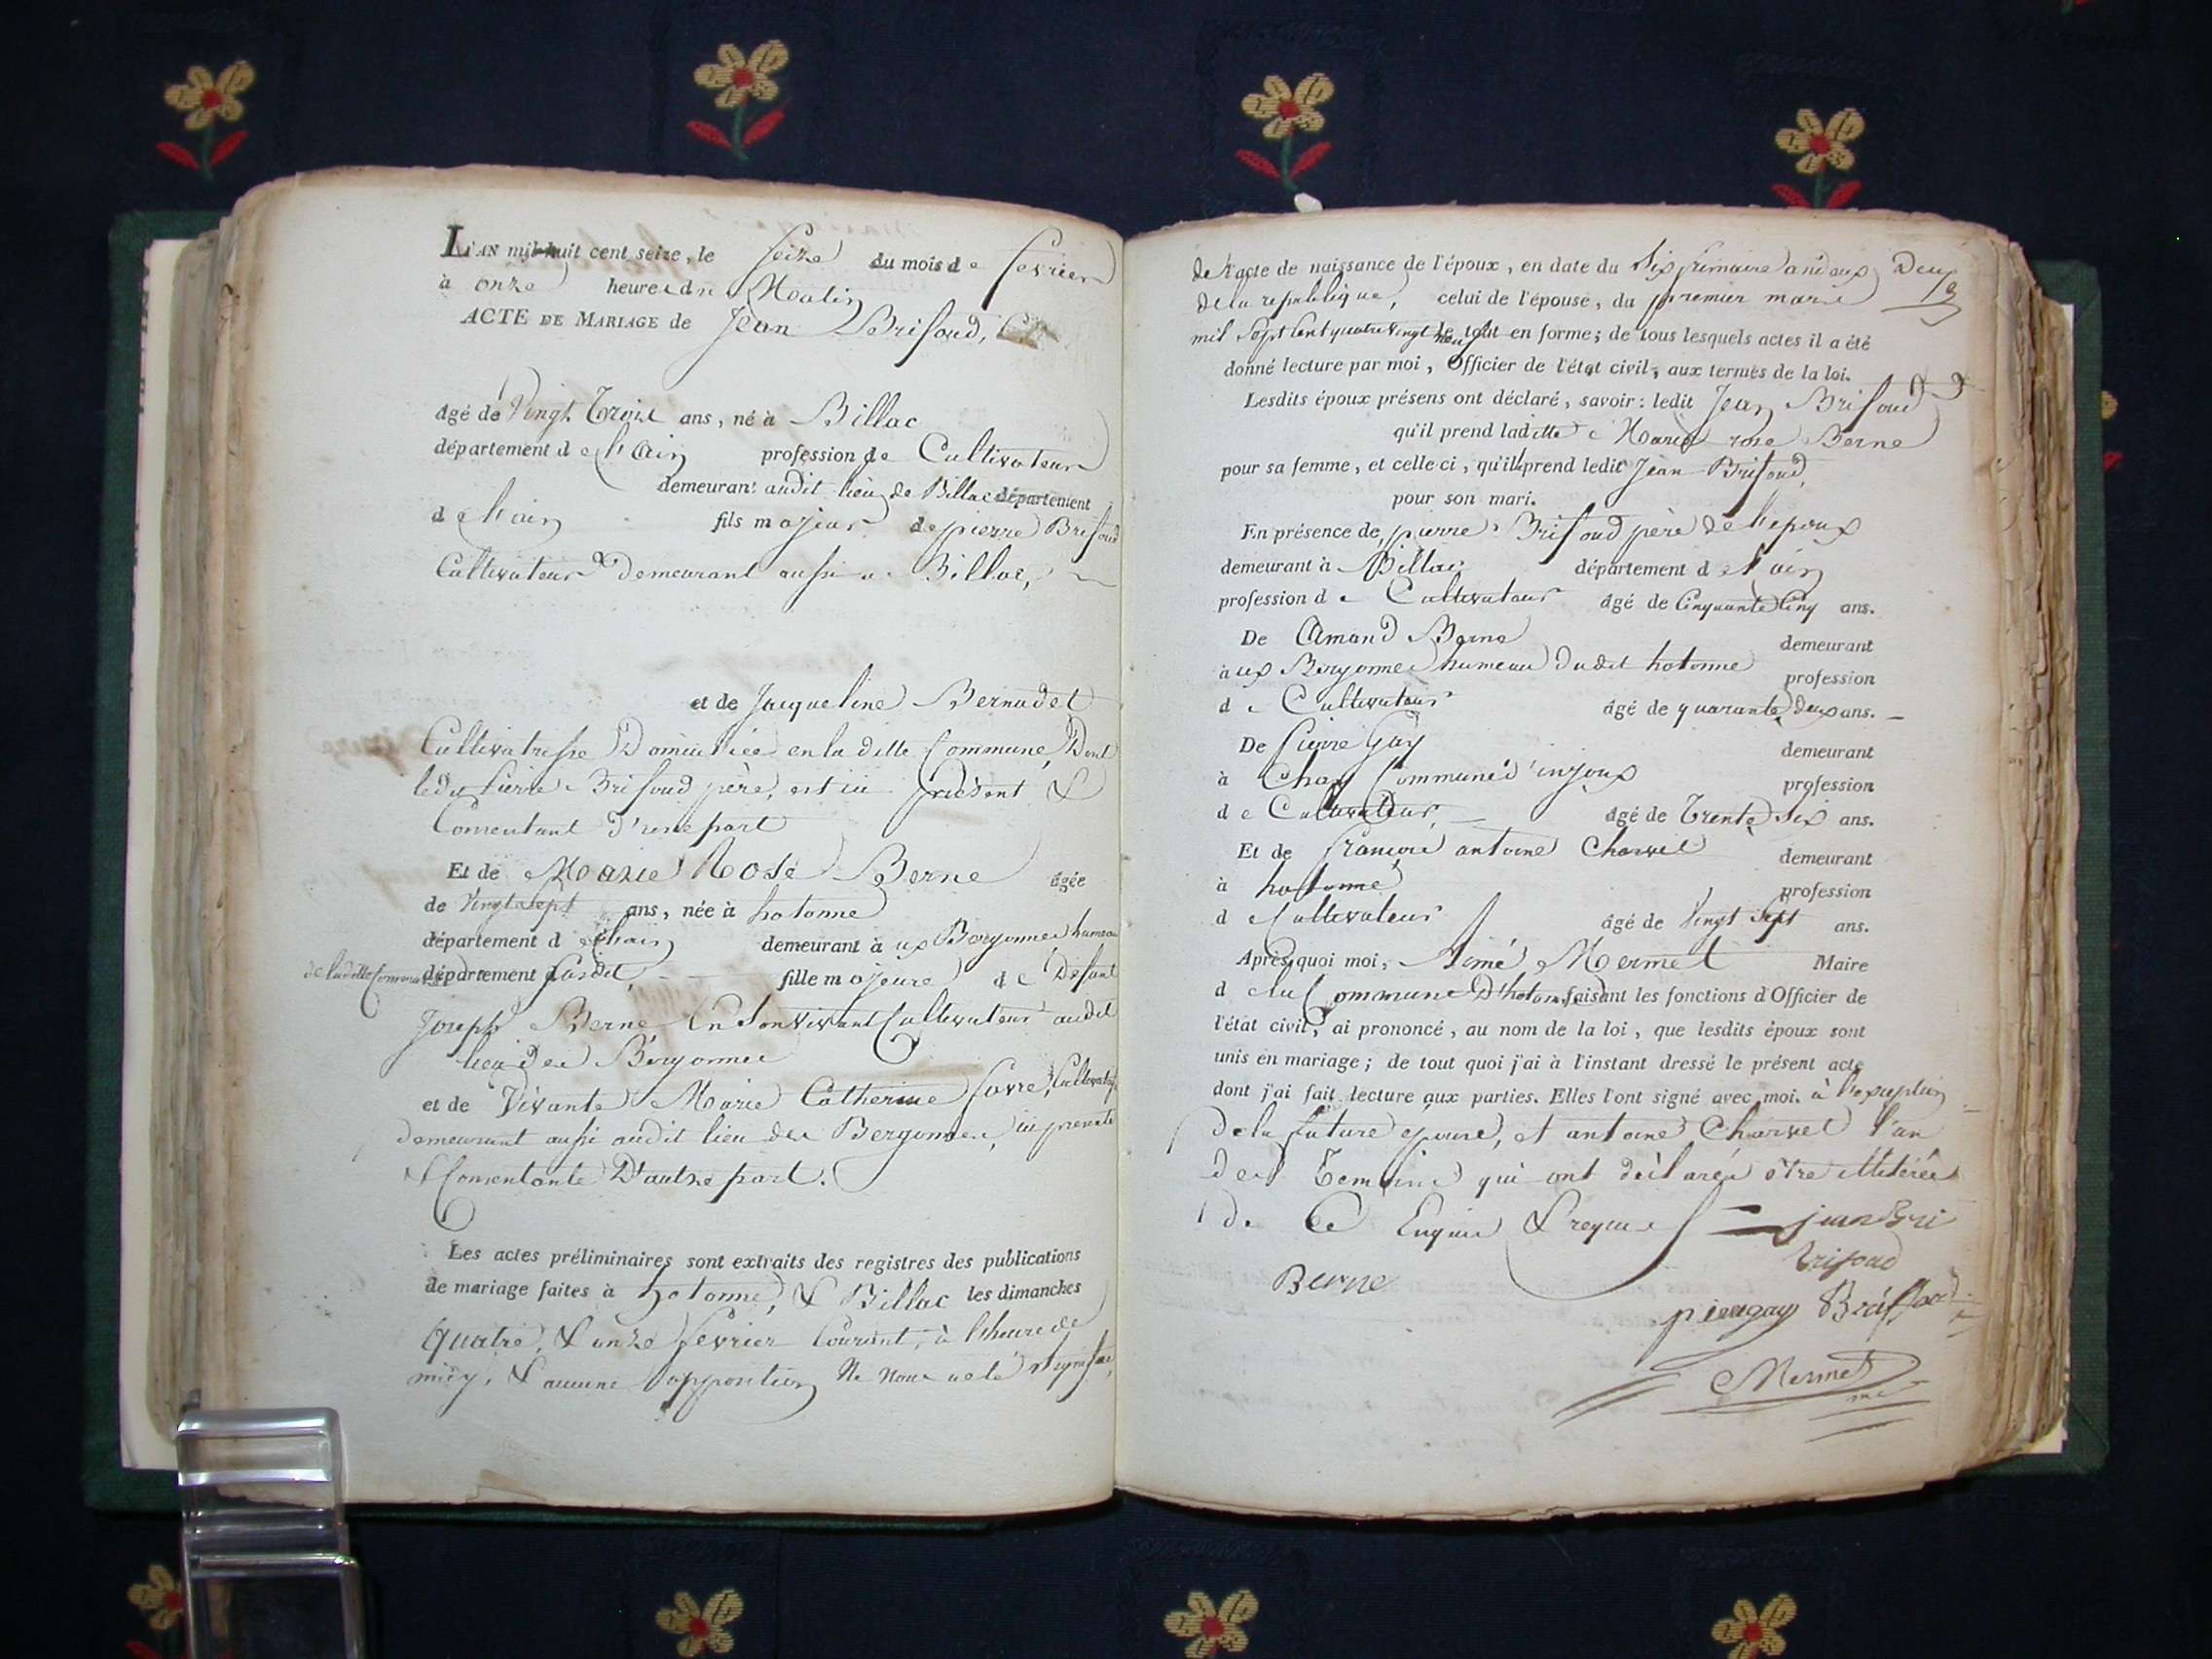 L'AN mil huit cent seize, le seize du mois de fevrier
à onze heures du Matin
ACTE DE MARIAGE de Jean Brifoud,
âgé de Vingt Trois ans, né à Billac
département de l'ain profession de Cultivateur
demeurant audit lieu de Billac département
de l'ain fils majeur de pierre Brifoud
Cultivateur demeurant aussi a Billac,
et de Jacqueline Bernadet
Cultivatrisse Domiciliée en la ditte Commune, Dont
ledit Pierre Brifoud père, est ici présent &
Consentant d'une part
Et de Marie Rose Berne âgée
de Vingt sept ans, née à hotonne
département de l'ain demeurant aux Bergonnes hameau
de laditte Commune département susdit, fille majeure de Défunt
Joseph Berne En Son vivant Cultivateur audit
lieu des Bergonnes
et de Vivante Marie Catherine favre, Cultivatrisse
demeurant aussi audit lieu des Bergonnes, ici presente
& Consentante D'autre part.
Les actes préliminaires sont extraits des registres des publications
de mariage faites à hotonne, & Billac les dimanches
quatre, & onze fevrier Courant, à l'heure de
midy, & aucune opposition Ne nous a eté signifiée,
de l'acte de naissance de l'époux, en date du six frimaire an deux Deux
de la republique, celui de l'épouse, du premier mars
mil sept cent quatre vingt neuf le tout en forme; de tous lesquels actes il a été
donné lecture par moi, Officier de l'état civil, aux termes de la loi.
Lesdits époux présens ont déclaré, savoir: ledit Jean Brifoud
qu'il prend laditte Marie rose Berne
pour sa femme, et celle-ci, qu'ille prend ledit Jean Brifoud,
pour son mari.
En présence de pierre Brifoud père de l'epoux
demeurant à Billac département de l'ain
profession de Cultivateur âgé de Cinquante Cinq ans.
De Amand Berne demeurant
aux Bergonnes hameau dudit hotonne profession
de Cultivateur âgé de quarante deux ans.
De Pierre Gay demeurant
à Chay Commune d'injoux profession
de Cultivateur, âgé de Trente Six ans.
Et de françois antoine Charvet demeurant
à hotonne profession
de Cultivateur âgé de Vingt Sept ans.
Après quoi moi, Aimé Mermet Maire
de la Commune D'hotonne faisant les fonctions d'Officier de
l'état civil, ai prononcé, au nom de la loi, que lesdits époux sont
unis en mariage; de tout quoi j'ai à l'instant dressé le présent acte
dont j'ai fait lecture aux parties. Elles l'ont signé avec moi. à l'exeption
de la future epouse, et antoine Charvet l'un
des Temoins qui ont déclarés être illitérés
de Ce Enquis & requis jean Bri
brifoud
Berne
pieregay Briffoud
Mermet